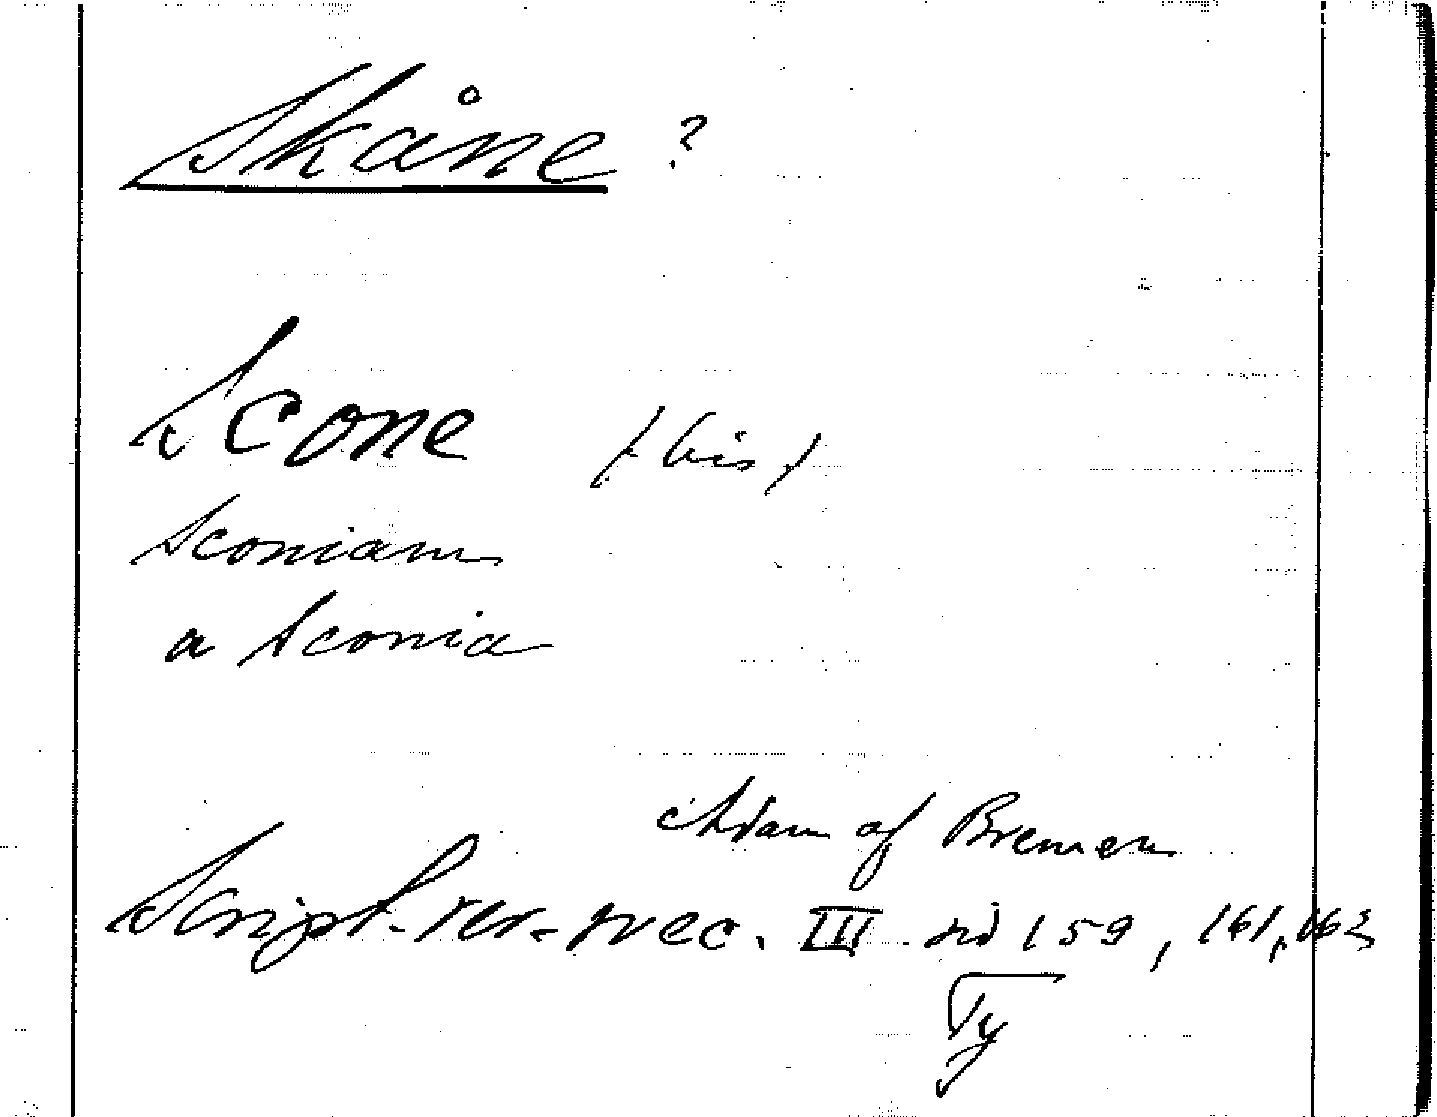 Skåne ?
Scone (bis)
Sconiam
a Sconia
Adam af Bremen
Script. rer. svec. III sid 159, 161, 163
Ty